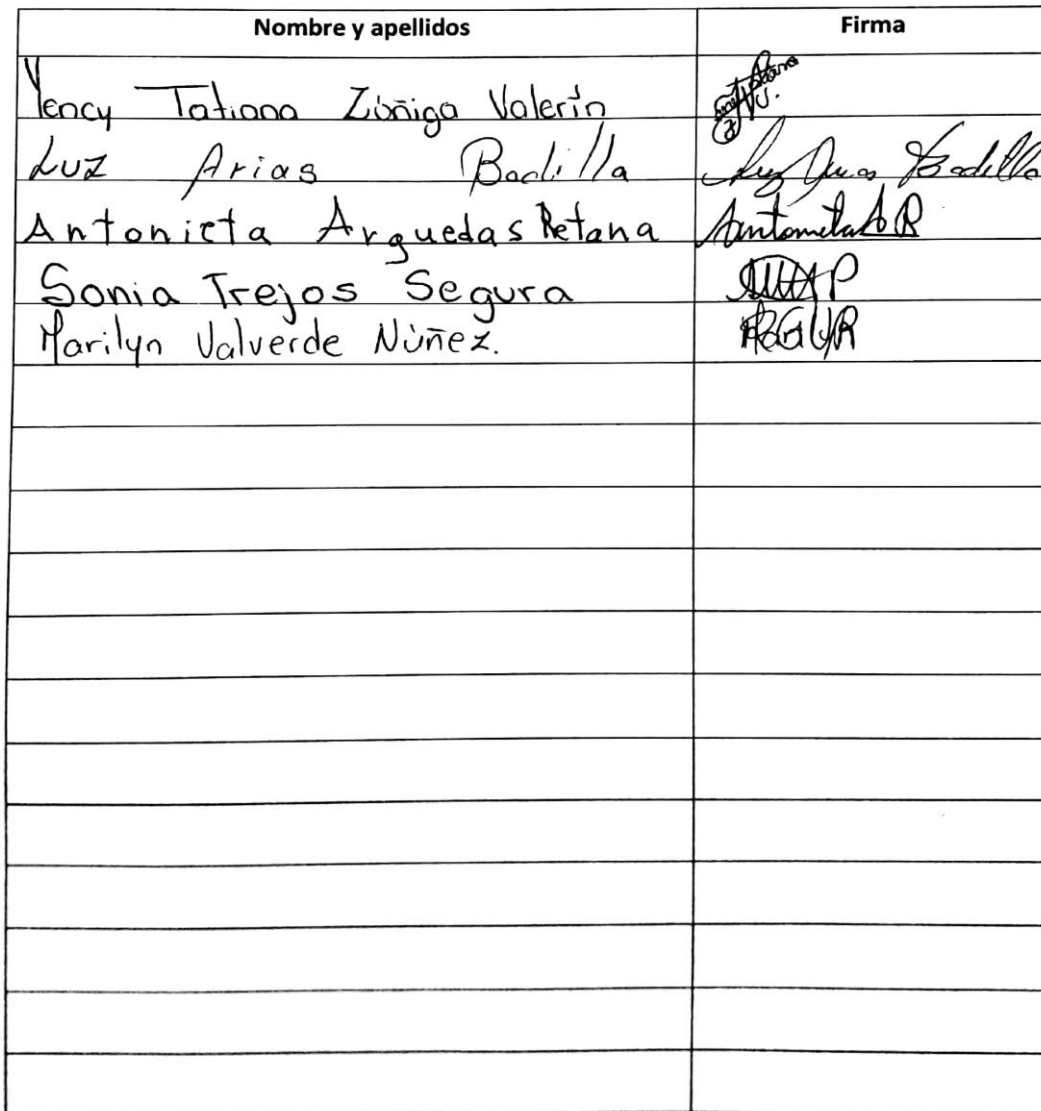 Nombre y apellidos Firma
Yency Tatiana Zúñiga Valerín
Luz Arias Badilla Luz Arias Badilla
Antonieta Arguedas Retana Antonieta A R
Sonia Trejos Segura
Marilyn Valverde Núñez.